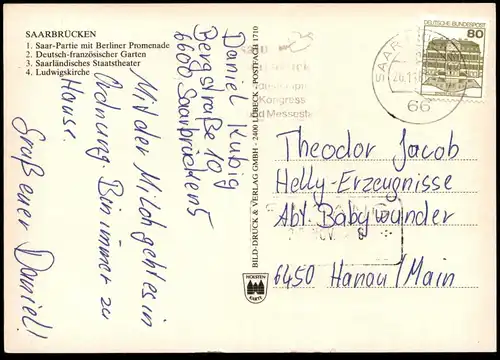 SAARBRÜCKEN
1. Saar-Partie mit Berliner Promenade
2. Deutsch-französischer Garten
3. Saarländisches Staatstheater
4. Ludwigskirche
Daniel Kubig
Bergstraße 10
6600 Saarbrücken 5
Mit der Milch geht es in
Ordnung. Bin immer zu
Hause.
Gruß euer Daniel!
BILD-DRUCK & VERLAG GMBH - 2400 LÜBECK - POSTFACH 1710
HOLSTEN
KARTE
Kongress
und Messestadt
SAAR
66
DEUTSCHE BUNDESPOST
80
Theodor Jacob
Helly-Erzeugnisse
Abt. Babywunder
6450 Hanau/Main